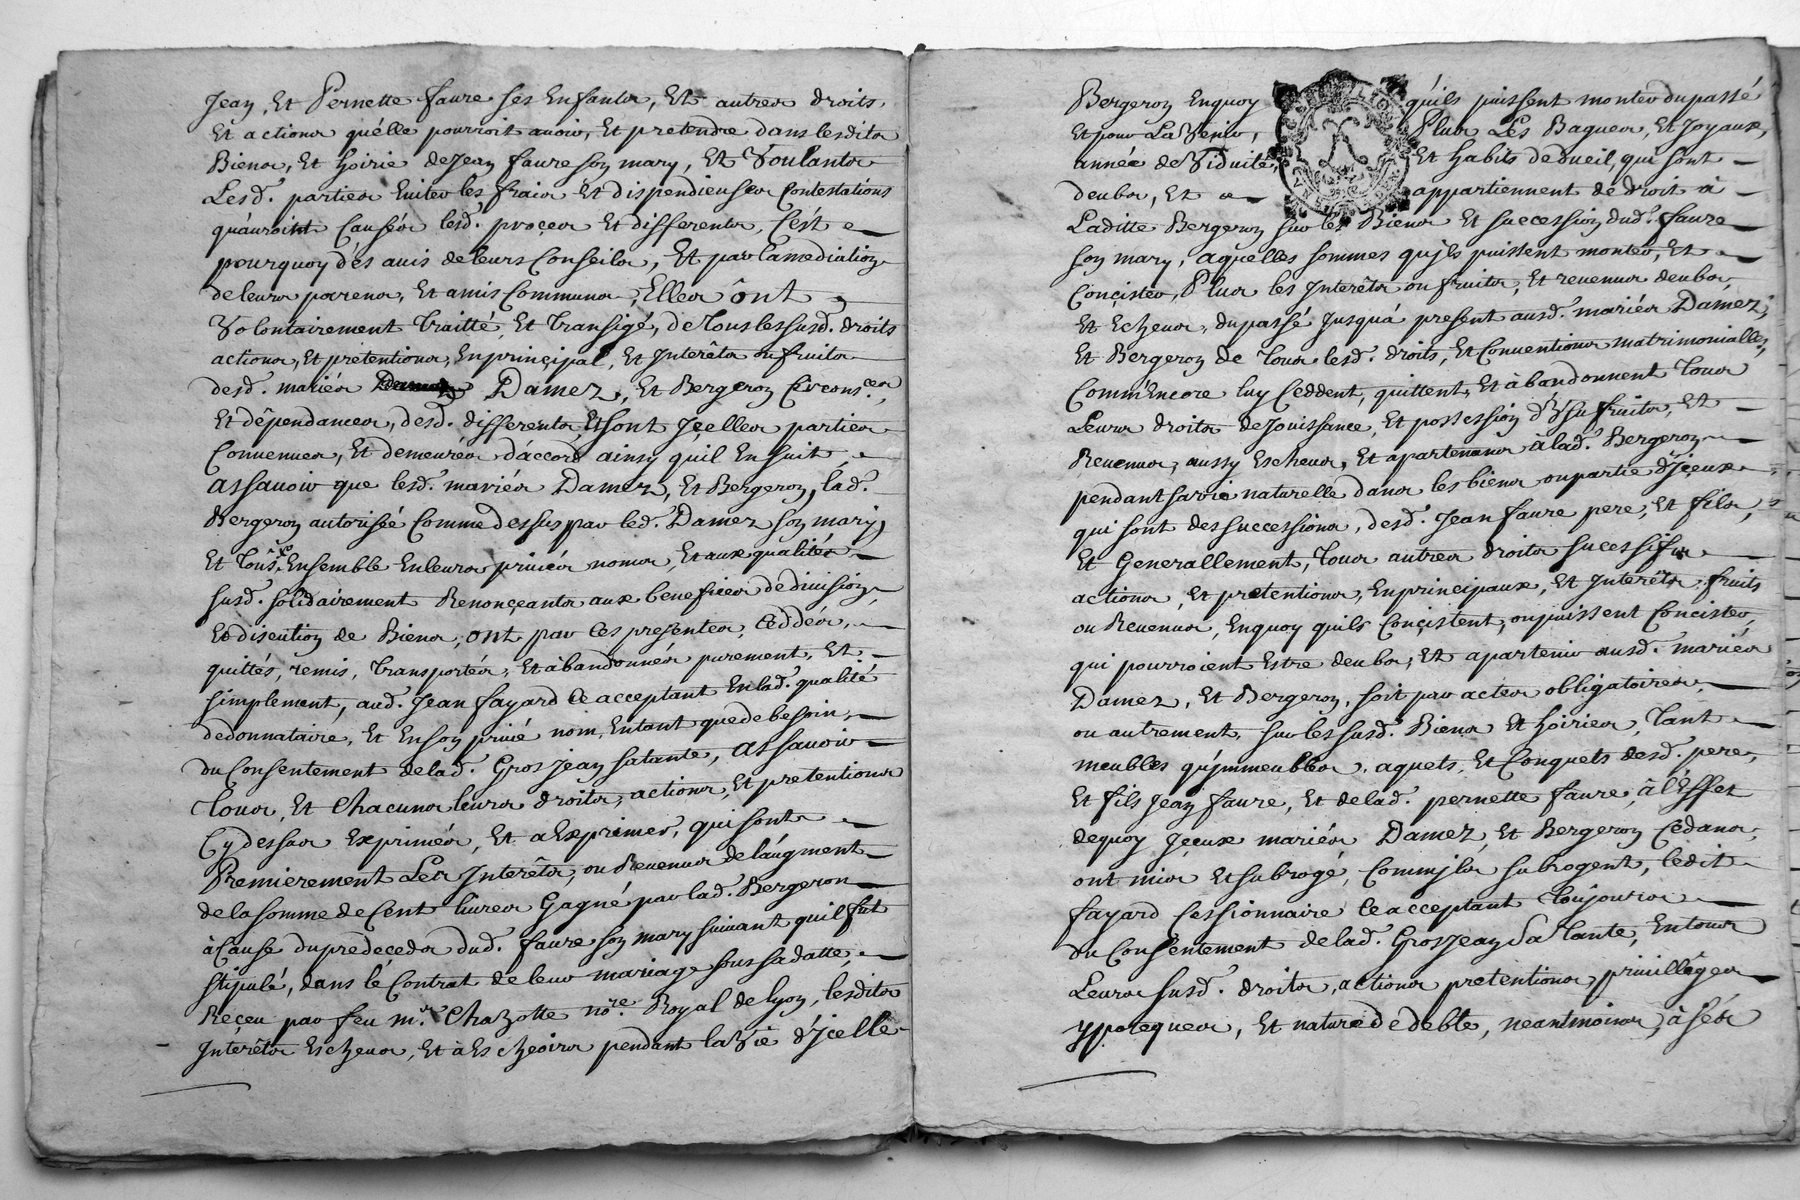 Jean, Et Pernette faure ses Enfants, Et autres droits
Et actions qu'elle pourroit auoir, Et pretendre dans lesdits
Biens, Et hoirie de Jean faure son mary, Et Voulants
Lesd. parties Euiter les fraix Et dispendieuses Contestations
qu'auroint Causés lesd. proçes Et differents, C'est
pourquoy dés auis de leurs Conseils, Et par la mediation
de leurs parens, Et amis Communs, Elles ônt
Volontairement Traitté, Et Transigé, de Tous les susd. droits
actions, Et prétentions, En prinçipal, Et Interêts ou fruits
desd. mariés Damez, Et Bergeron Circons.ces
Et dépendances, desd. differents, Et sont Jçelles parties
Conuenues, Et demeurés d'accord ainsy quil En suit
assauoir que lesd. mariés Damez, Et Bergeron, lad.
Bergeron autorisée Comme dessus par led. Damez son mary,
Et Tôus Ensemble En leurs priués noms, Et aux qualités
susd. solidairement Renonçeants aux benefices de diuision,
Et discution de Biens, ont par Ces presentes, Ceddés,
quittés, remis, Transportés, Et àbandonnés purement, Et
simplement, aud. Jean fayard Ce acceptant En lad. qualité
de donnataire, Et En son priué nom, Entant que de besoin,
du Consentement de lad. Gros Jean sa tante, assauoir
Tous, Et Chacuns leurs droits, actions, Et pretentions
Cy dessus Exprimés, Et a Exprimer, qui sont
Premierement Les Interêts, ou Reuenus de l'augment
de la somme de Cent liures Gagné par lad. Bergeron
à Cause du predecedes dud. faure son mary suiuant quil fut
stipulé, dans lé Contrat de leur mariage sous sa datte,
Reçeu par feu m.r Chazotte no.re Royal de lyon, lesdits
Interêts Escheus, Et à Escheoirs pendant la Vie d'Jcelle
Bergeron Enquoy qu'ils puissent monter du passé
Et pour La Venir, Plus Les Bagues, Et Joyaux,
année de Viduité, Et habits de dueil, qui sont
deubs, Et appartiennent de droit à
Laditte Bergeron sur les Biens Et succession dud. faure
son mary, aquelles sommes quils puissent monter, Et
Conçister, Plus les Interêts ou fruits, Et reuenus deubs
Et Echeus, du passé Jusquá present ausd. mariés Damez,
Et Bergeron de Tous lesd. droits, Et Conuentions matrimonialles,
Comm'Encore luy Ceddent, quittent, Et àbandonnent Tous
Leurs droits de Jouissance, Et possession d'Vsufruits, Et
Reuenus, aussy Escheus, Et apartenans à lad. Bergeron
pendant sa vie naturelle dans les biens ou partie d'Jçeux
qui sont des successions, desd. Jean faure pere, Et fils,
Et Generallement, Tous autres droits sucessifs
actions, Et pretentions, En principaux, Et Interêts, fruits
ou Reuenus, Enquoy quils Conçistent, ou puissent Concister,
qui pourroient Estre deubs, Et apartenir ausd. mariés
Damez, Et Bergeron, soit par actes obligatoires,
ou autrement, sur les susd. Biens Et hoiries, Tant
meubles qu'jmmeubles, aquets, Et Conquets desd. pere,
Et fils Jean faure, Et de lad. pernette faure, à l'Effet
dequoy Jçeux mariés Damez, Et Bergeron Cedans,
ont mis Et subrogé, Comm'jls subrogent, ledit
fayard Cessionnaire Ce acceptant Toujours
du Consentement de lad. Gros Jean Sa Tante, En tous
Leurs susd. droits, actions pretentions, priuilléges
ypoteques, Et nature dé debte, neantmoins, à sés